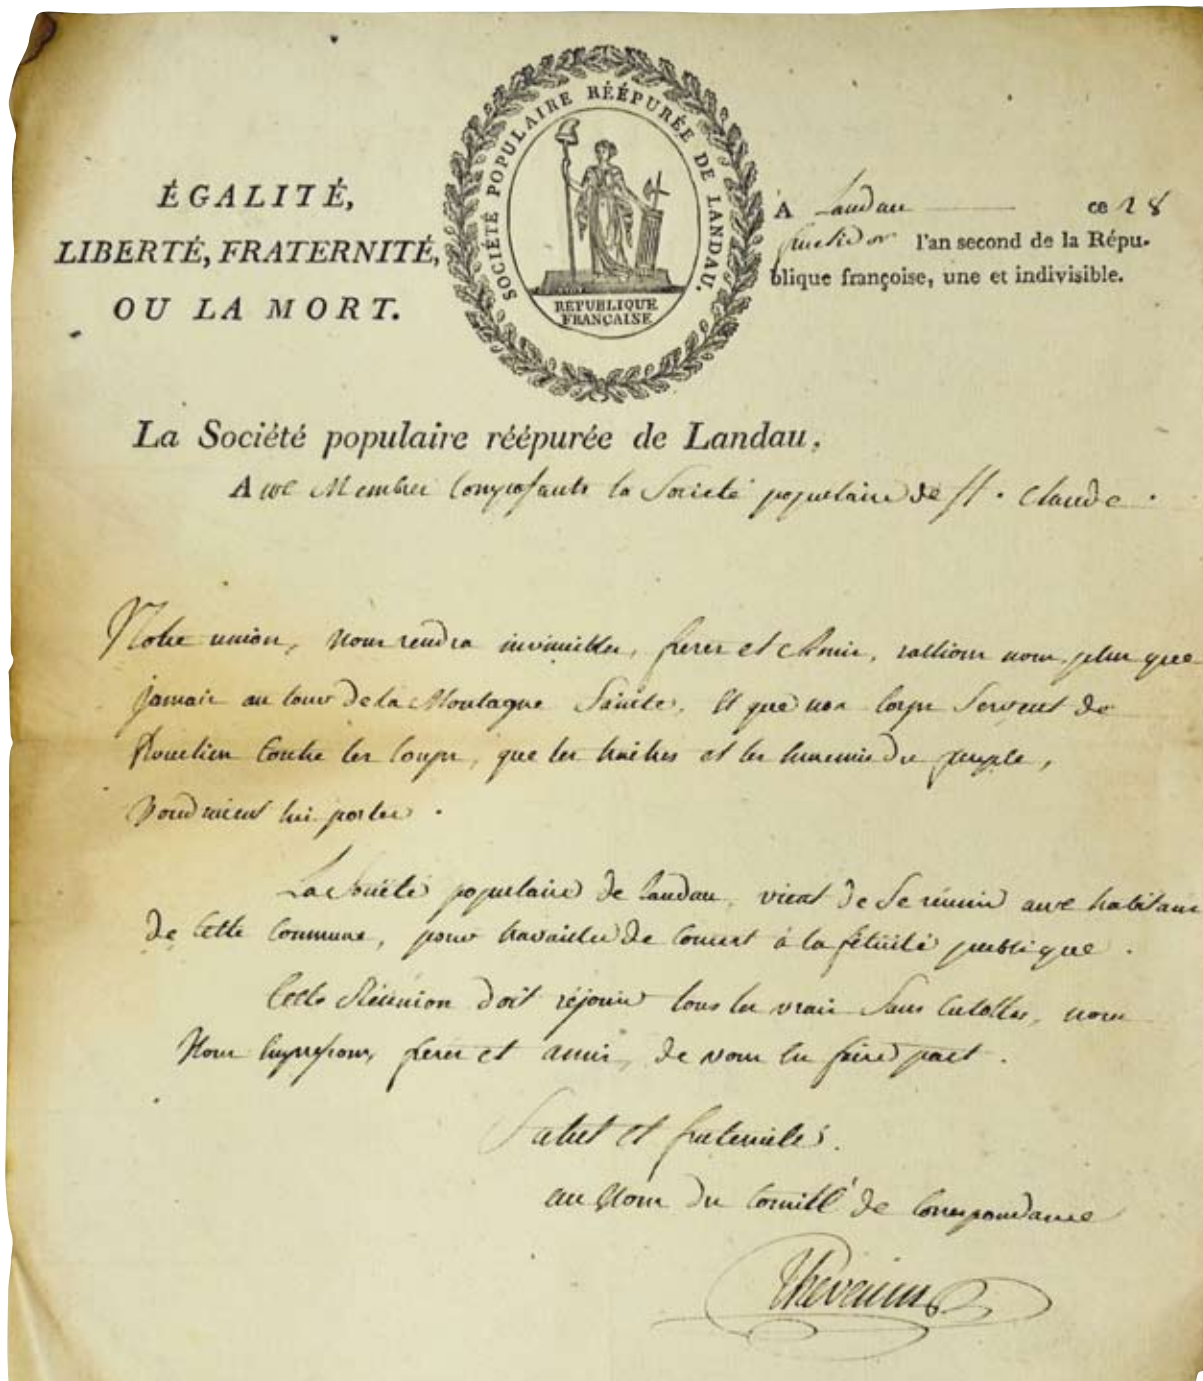 ÉGALITÉ,
LIBERTÉ, FRATERNITÉ,
OU LA MORT.
SOCIÉTÉ POPULAIRE RÉÉPURÉE DE LANDAU.
REPUBLIQUE
FRANÇAISE
A Landau ce 28
fructidor l'an second de la Répu-
blique françoise, une et indivisible.
La Société populaire réépurée de Landau,
Aux Membres Composants la Société populaire de St. Claude.
Notre union, nous rendra invincibles, freres et Amis, rallions nous plus que
jamais au tour de la Montagne Sainte. Et que nos Corps Servent de
Soutien Contre les Coups, que les traitres et les Ennemis du peuple,
voudroient lui porter.
La Société populaire de Landau, vient de Se réunir aux habitans
de Cette Commune, pour travailler de Concert à la félicité publique.
Cette Réunion doit réjouir tous les vrais Sans Culottes, nous
Nous Empressons, freres et amis, de vous En faire part.
Salut et fraternité.
au Nom du Comité de Correspondance
Thevenin